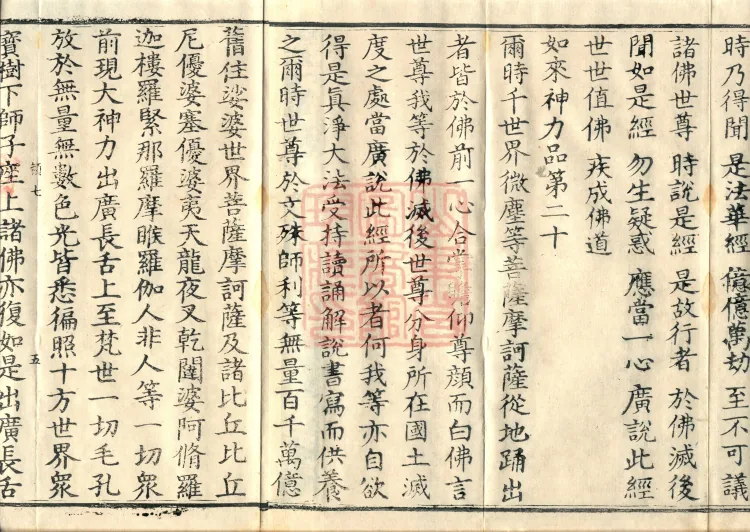 時乃得聞 是法華經 億億萬劫 至不可議
諸佛世尊 時說是經 是故行者 於佛滅後
聞如是經 勿生疑惑 應當一心 廣說此經
世世值佛 疾成佛道
如來神力品第二十
爾時千世界微塵等菩薩摩訶薩從地踊出
者皆於佛前一心合掌瞻仰尊顏而白佛言
世尊我等於佛滅後世尊分身所在國土滅
度之處當廣說此經所以者何我等亦自欲
得是真淨大法受持讀誦解說書寫而供養
之爾時世尊於文殊師利等無量百千萬億
舊住娑婆世界菩薩摩訶薩及諸比丘比丘
尼優婆塞優婆夷天龍夜叉乾闥婆阿脩羅
迦樓羅緊那羅摩睺羅伽人非人等一切眾
前現大神力出廣長舌上至梵世一切毛孔
放於無量無數色光皆悉徧照十方世界眾
七 五
寶樹下師子座上諸佛亦復如是出廣長舌